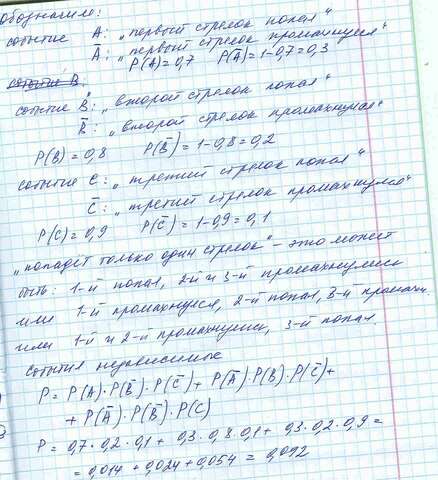 обозначим:
событие A: „первый стрелок попал“
Ā: „первый стрелок промахнулся“
P(A)=0,7 P(Ā)=1-0,7=0,3
событие B
событие B: „второй стрелок попал“
B̄: „второй стрелок промахнулся“
P(B)=0,8 P(B̄)=1-0,8=0,2
событие C: „третий стрелок попал“
C̄: „третий стрелок промахнулся“
P(C)=0,9 P(C̄)=1-0,9=0,1
„попадет только один стрелок“ - это может
быть: 1-й попал, 2-й и 3-й промахнулись
или 1-й промахнулся, 2-й попал, 3-й промахн.
или 1-й и 2-й промахнулись, 3-й попал.
События независимые
P = P(A)·P(B̄)·P(C̄)+ P(Ā)·P(B)·P(C̄)+
+ P(Ā)·P(B̄)·P(C)
P = 0,7·0,2·0,1+ 0,3·0,8·0,1+ 0,3·0,2·0,9=
= 0,014+0,024+0,054 = 0,092